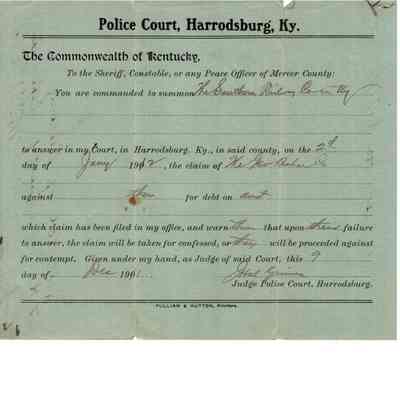 Police Court, Harrodsburg, Ky.
The Commonwealth of Kentucky,
To the Sheriff, Constable, or any Peace Officer of Mercer County:
You are commanded to summon The Southern Railway Co in Ky
to answer in my Court, in Harrodsburg, Ky., in said county, on the 2nd
day of Jany 1902, the claim of The
against them for debt on acct
which claim has been filed in my office, and warn them that upon their failure
to answer, the claim will be taken for confessed, or they will be proceeded against
for contempt. Given under my hand, as Judge of said Court, this 9
day of Dec 1901
Judge Police Court, Harrodsburg.
PULLIAM & HUTTON, PRINTERS.